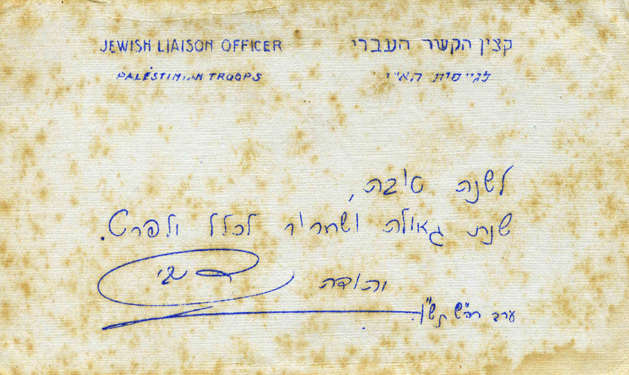 JEWISH LIAISON OFFICER קצין הקשר העברי
PALESTINIAN TROOPS לגייסות הא"י
לשנה טובה,
שנת גאולה ושחרור לכלל ולפרט.
יהודה
ערב רה"ש